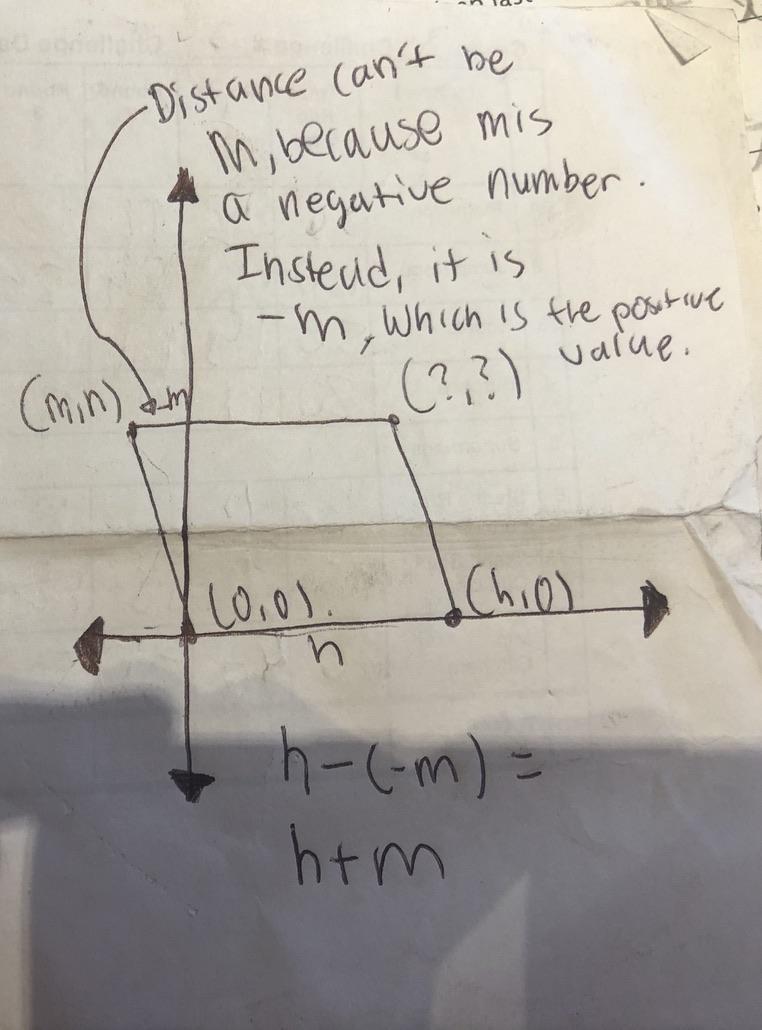 Distance can't be
m, because m is
a negative number.
Instead, it is
-m, which is the positive
value.
(?,?)
(m,n)
-m
(0,0).
(h,0)
h
h-(-m) =
h+m